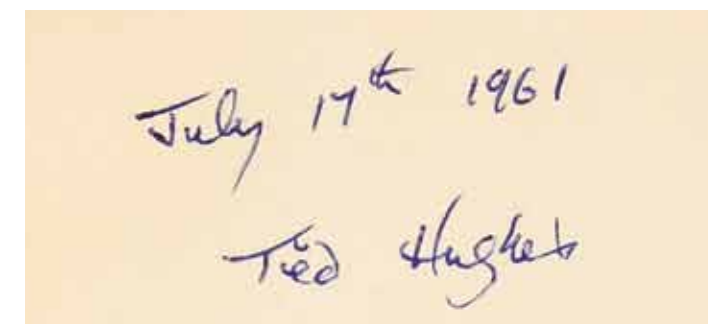 July 17th 1961
Ted Hughes